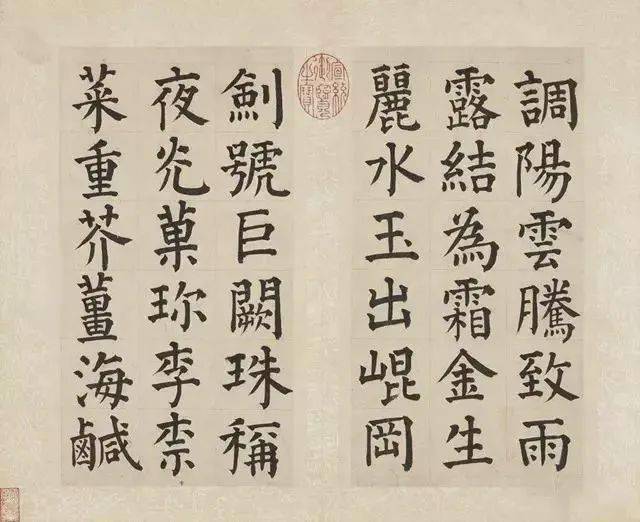 調陽雲騰致雨
露結為霜金生
麗水玉出崐岡
劍號巨闕珠稱
夜光菓珎李柰
菜重芥薑海鹹